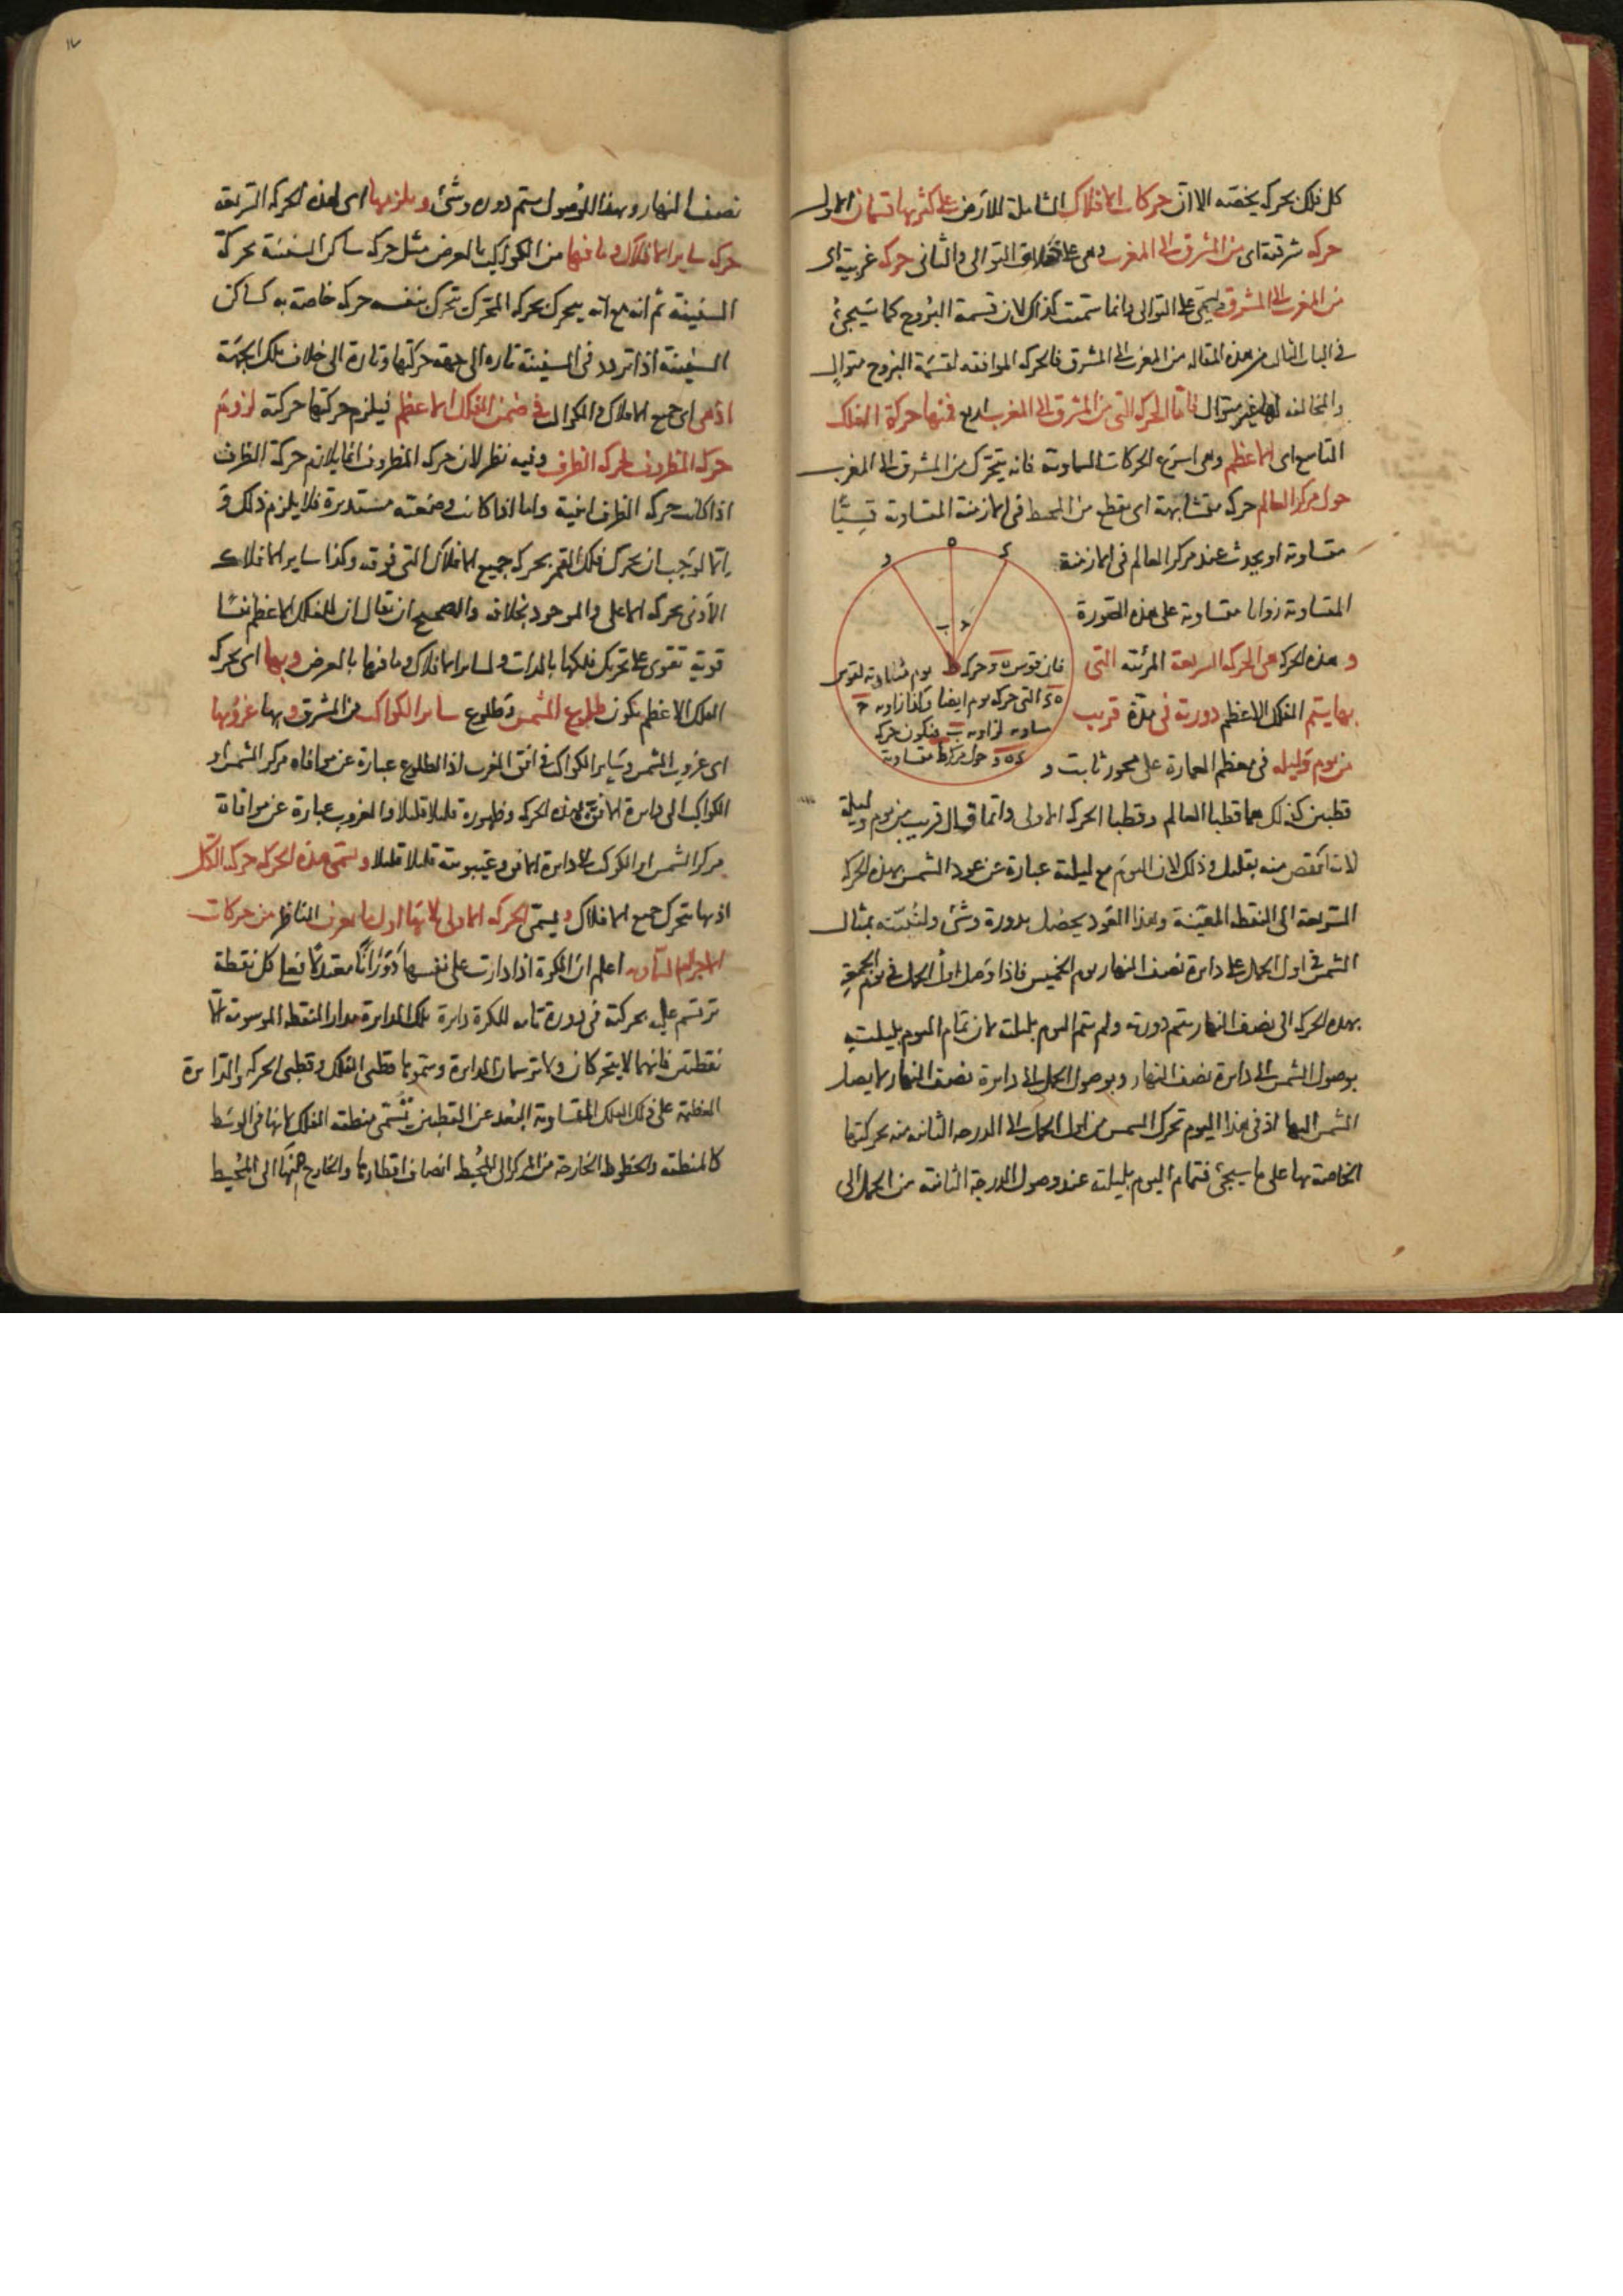 كل فلك بحركة يخصه الا ان حركات الافلاك الشاملة للارض على كثرتها قسمان الاول
حركة شرقية اى من المشرق الى المغرب وهى على خلاف التوالى والثانى حركة غربية اى
من المغرب الى المشرق وهى على التوالى وانما سميت كذلك لان قسمة البروج كما سيجئ
فى الباب الثالث من هذه المقالة من المغرب الى المشرق فالحركة الموافقة لقسمة البروج متوال
والمخالفة لها غير متوال فاما الحركة التى من المشرق الى المغرب اربع فمنها حركة الفلك
التاسع اى الاعظم وهى اسرع الحركات السماوية فانه يتحرك من المشرق الى المغرب
حول مركز العالم حركة متشابهة اى يقطع من المحيط فى الازمنة المتساوية قسيا
متساوية او يحدث عند مركز العالم فى الازمنة
المتساوية زوايا متساوية على هذه الصورة
د ه ء
ب ح
فان قوس ه د حركة يوم مساوية لقوس
ه ء التى حركة يوم ايضا وكذا زاوية ح
مساوية لزاوية ب فيكون حركة
ء ه د حول مركز ط متساوية
و هذه الحركة هى الحركة السريعة المرئية التى
بها يتم الفلك الاعظم دورته فى مدة قريب
من يوم وليلة فى معظم العمارة على محور ثابت و
قطبين كذلك هما قطبا العالم وقطبا الحركة الاولى وانما قال قريب من يوم وليلة
لانه انقص منه بقليل وذلك لان اليوم مع ليلته عبارة عن عود الشمس بهذه الحركة
السريعة الى النقطة المعينة وهذا العود يحصل بدورة وشئ ولنبينه بمثال
الشمس فى اول الحمل على دايرة نصف النهار يوم الخميس فاذا وصل اول الحمل فى يوم الجمعة
بهذه الحركة الى نصف النهار يتم دورته ولم يتم اليوم بليلته لان تمام اليوم بليلته
بوصول الشمس الى دايرة نصف النهار وبوصول الحمل الى دايرة نصف النهار لا يصل
الشمس اليها اذ فى هذا اليوم تحرك الشمس من اول الحمل الى الدرجة الثانية منه بحركتها
الخاصة بها على ما سيجئ فتمام اليوم بليلته عند وصول الدرجة الثانية من الحمل الى
نصف النهار وبهذا الوصول يتم دورة وشئ ويلزمها اى لهذه الحركة السريعة
حركة ساير الافلاك وما فيها من الكواكب بالعرض مثل حركة ساكن السفينة بحركة
السفينة ثم انه مع انه يتحرك بحركة المتحرك يتحرك بنفسه حركة خاصة به كساكن
السفينة اذا تردد فى السفينة تارة الى جهة حركتها وتارة الى خلاف تلك الجهة
اذ هى اى جميع الافلاك والكواكب فى ضمن الفلك الاعظم فيلزم حركتها حركته لزوم
حركة المظروف لحركة الظرف وفيه نظر لان حركة المظروف انما يلازم حركة الظرف
اذا كانت حركة الظرف اينية واما اذا كانت وضعية مستديرة فلا يلزم ذلك و
انما لوجب ان يحرك فلك القمر بحركة جميع الافلاك التى فوقه وكذا ساير الافلاك
الادنى بحركة الاعلى والموجود بخلافه والصحيح ان يقال ان للفلك الاعظم نفسا
قوية تقوى على تحريك فلكها بالذات ولساير الافلاك وما فيها بالعرض وبها اى بحركة
الفلك الاعظم يكون طلوع الشمس وطلوع ساير الكواكب من المشرق وبها غروبها
اى غروب الشمس وساير الكواكب فى افق المغرب اذ الطلوع عبارة عن موافاة مركز الشمس او
الكواكب الى دايرة الافق بهذه الحركة وظهوره قليلا قليلا والغروب عبارة عن موافاة
مركز الشمس او الكوكب الى دايرة الافق وغيبوبته قليلا قليلا ويسمى هذه الحركة حركة الكل
اذ بها يتحرك جميع الافلاك ويسمى الحركة الاولى لانها اول ما يعرف الناظر من حركات
الاجرام السماوية اعلم ان الكرة اذا دارت على نفسها دورانا معتدلا فعلى كل نقطة
ترتسم عليه بحركته فى دورة تامة للكرة دايرة تلك الدايرة مدار النقطة الموسومة الا
نقطتين فانهما لا يتحركان ولا ترسمان الدايرة وسموهما قطبى الفلك وقطبى الحركة والدايرة
العظيمة على ذلك الفلك المتساوية البعد عن القطبين تسمى منطقة الفلك لانها فى الوسط
كالمنطقة والخطوط الخارجة من المركز الى المحيط انصاف اقطارها والخارج منها الى المحيط